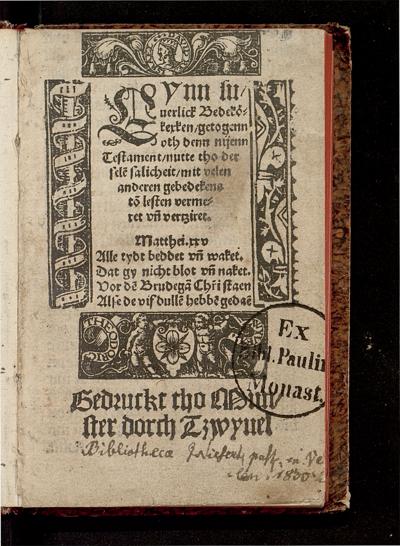 EYnn su/
uerlick Bedebö-
kerken/getogenn
oth denn nijenn
Testament/nutte tho der
selē salicheit/mit velen
anderen gebedekens
tō lesten verme-
ret vñ vertziret.
Matthei.xxv
Alle tydt beddet vñ waket.
Dat gy nicht blot vñ naket.
Vor dē Brudegā Chr̄i staen
Alse de vif dullē hebbē gedaē
THEODRIC
Ex
Bibl. Paulin
Monast.
Gedruckt tho Mün
ster dorch Tzwyuel
Bibliotheca Niesert, past. in Ve
len 1830